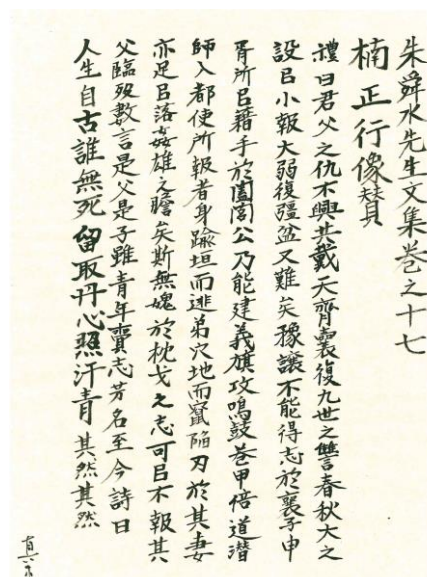 朱舜水先生文集卷之十七
楠正行像賛
禮曰君父之仇不興共戴天齊襄復九世之讐春秋大之
設㠯小報大弱復彊盆又難矣豫讓不能得志於襄子申
胥所㠯藉手於闔閭公乃能建義旗攻鳴鼓卷甲倍道潜
師入都使所報者身踰垣而逃弟穴地而竄陷刃於其妻
亦足㠯落姦雄之膽矣斯無媿於枕戈之志可㠯不報其
父臨歿數言是父是子雖青年賫志芳名至今詩曰
人生自古誰無死留取丹心照汗青其然其然